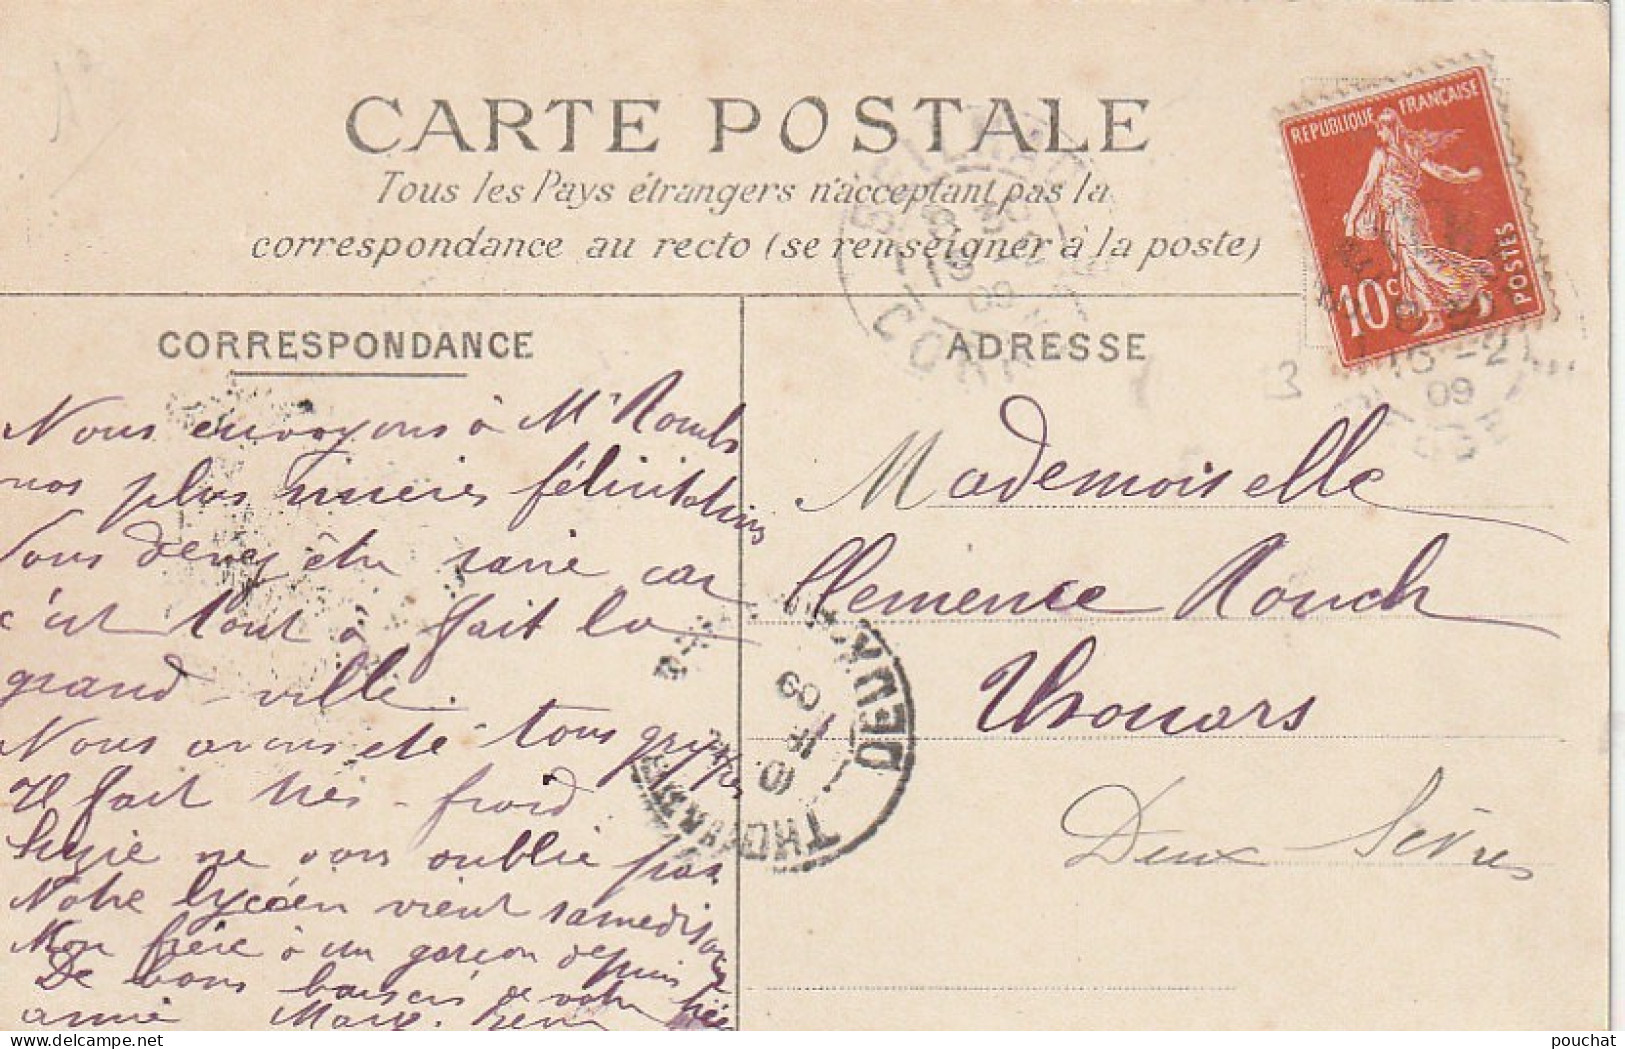 CARTE POSTALE
Tous les Pays étrangers n'acceptent pas la
correspondance au recto (se renseigner à la poste)
REPUBLIQUE FRANÇAISE
10c
POSTES
CORRESPONDANCE
Nous envoyons à Mr
nos plus sincères félicitations
Vous devez être ravie car
c'est tout à fait la
grand - ville.
Nous avons été tous grippés
Il fait très - froid
Suzie ne vous oublie pas
Notre lycéen vient samedi soir
Mon frère à un garçon depuis
De bons baisers de votre
amie
ADRESSE
3
Mademoiselle
Clemence Rouch
Thouars
Deux Sèvres
09
THOUARS
DEUX
09
pouchat
delcampe.net